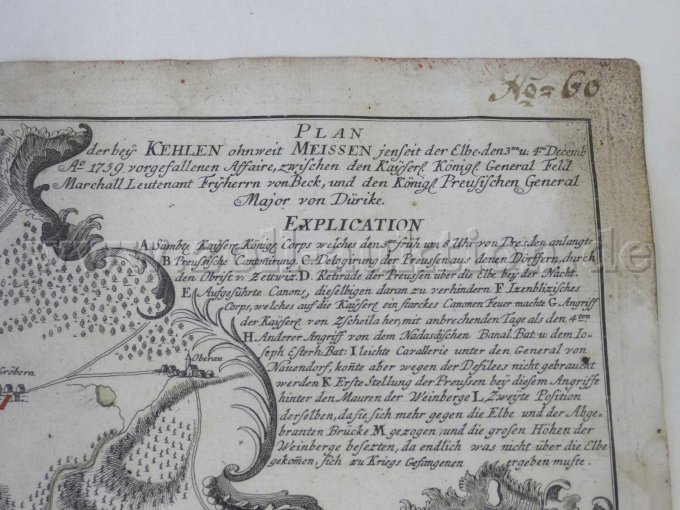 No = 60
PLAN
der beÿ KEHLEN ohnweit MEISSEN jenseit der Elbe. den 3ten u. 4ten Decemb
Ao 1759 vorgefallenen Affaire, zwischen den Kaÿserl. Königl. General Feld
Marchall Leutenant Frÿherrn von Beck, und den Königl. Preusischen General
Major von Dürike.
EXPLICATION
A Sämbtl. Kaÿserl. Königl. Corps welches den 3ten früh um 8 Uhr von Dresden anlangte
B Preusische Contonirung. C. Delogirung der Preusen aus denen Dörffern, durch
den Obrist v. Zettwiz D. Retirade der Preussen über die Elbe beÿ der Nacht.
E. Aufgeführte Canons, dieselbigen daran zu verhindern F. Izenblizisches
Corps, welches auf die Kaÿserl. ein starckes Canonen Feuer machte G. Angriff
der Kaÿserl. von Zscheila her, mit anbrechenden Tage als den 4ten
H. Anderer Angriff von dem Nadastischen Banal Bat: u. dem Jo-
seph Esterh. Bat: I leichte Cavallerie unter den General von
Nauendorf, konte aber wegen der Defilees nicht gebraucht
werden K. Erste Stellung der Preussen beÿ diesem Angriffe
hinter den Mauren der Weinberge L. Zweÿte Position
derselben, da sie sich mehr gegen die Elbe und der Abge-
branten Brücke M. gezogen, und die grosen Höhen der
Weinberge besezten, da endlich was nicht über die Elbe
gekomen, sich zu Kriegs Gefangenen ergeben muste.
Oberau
Gröbern